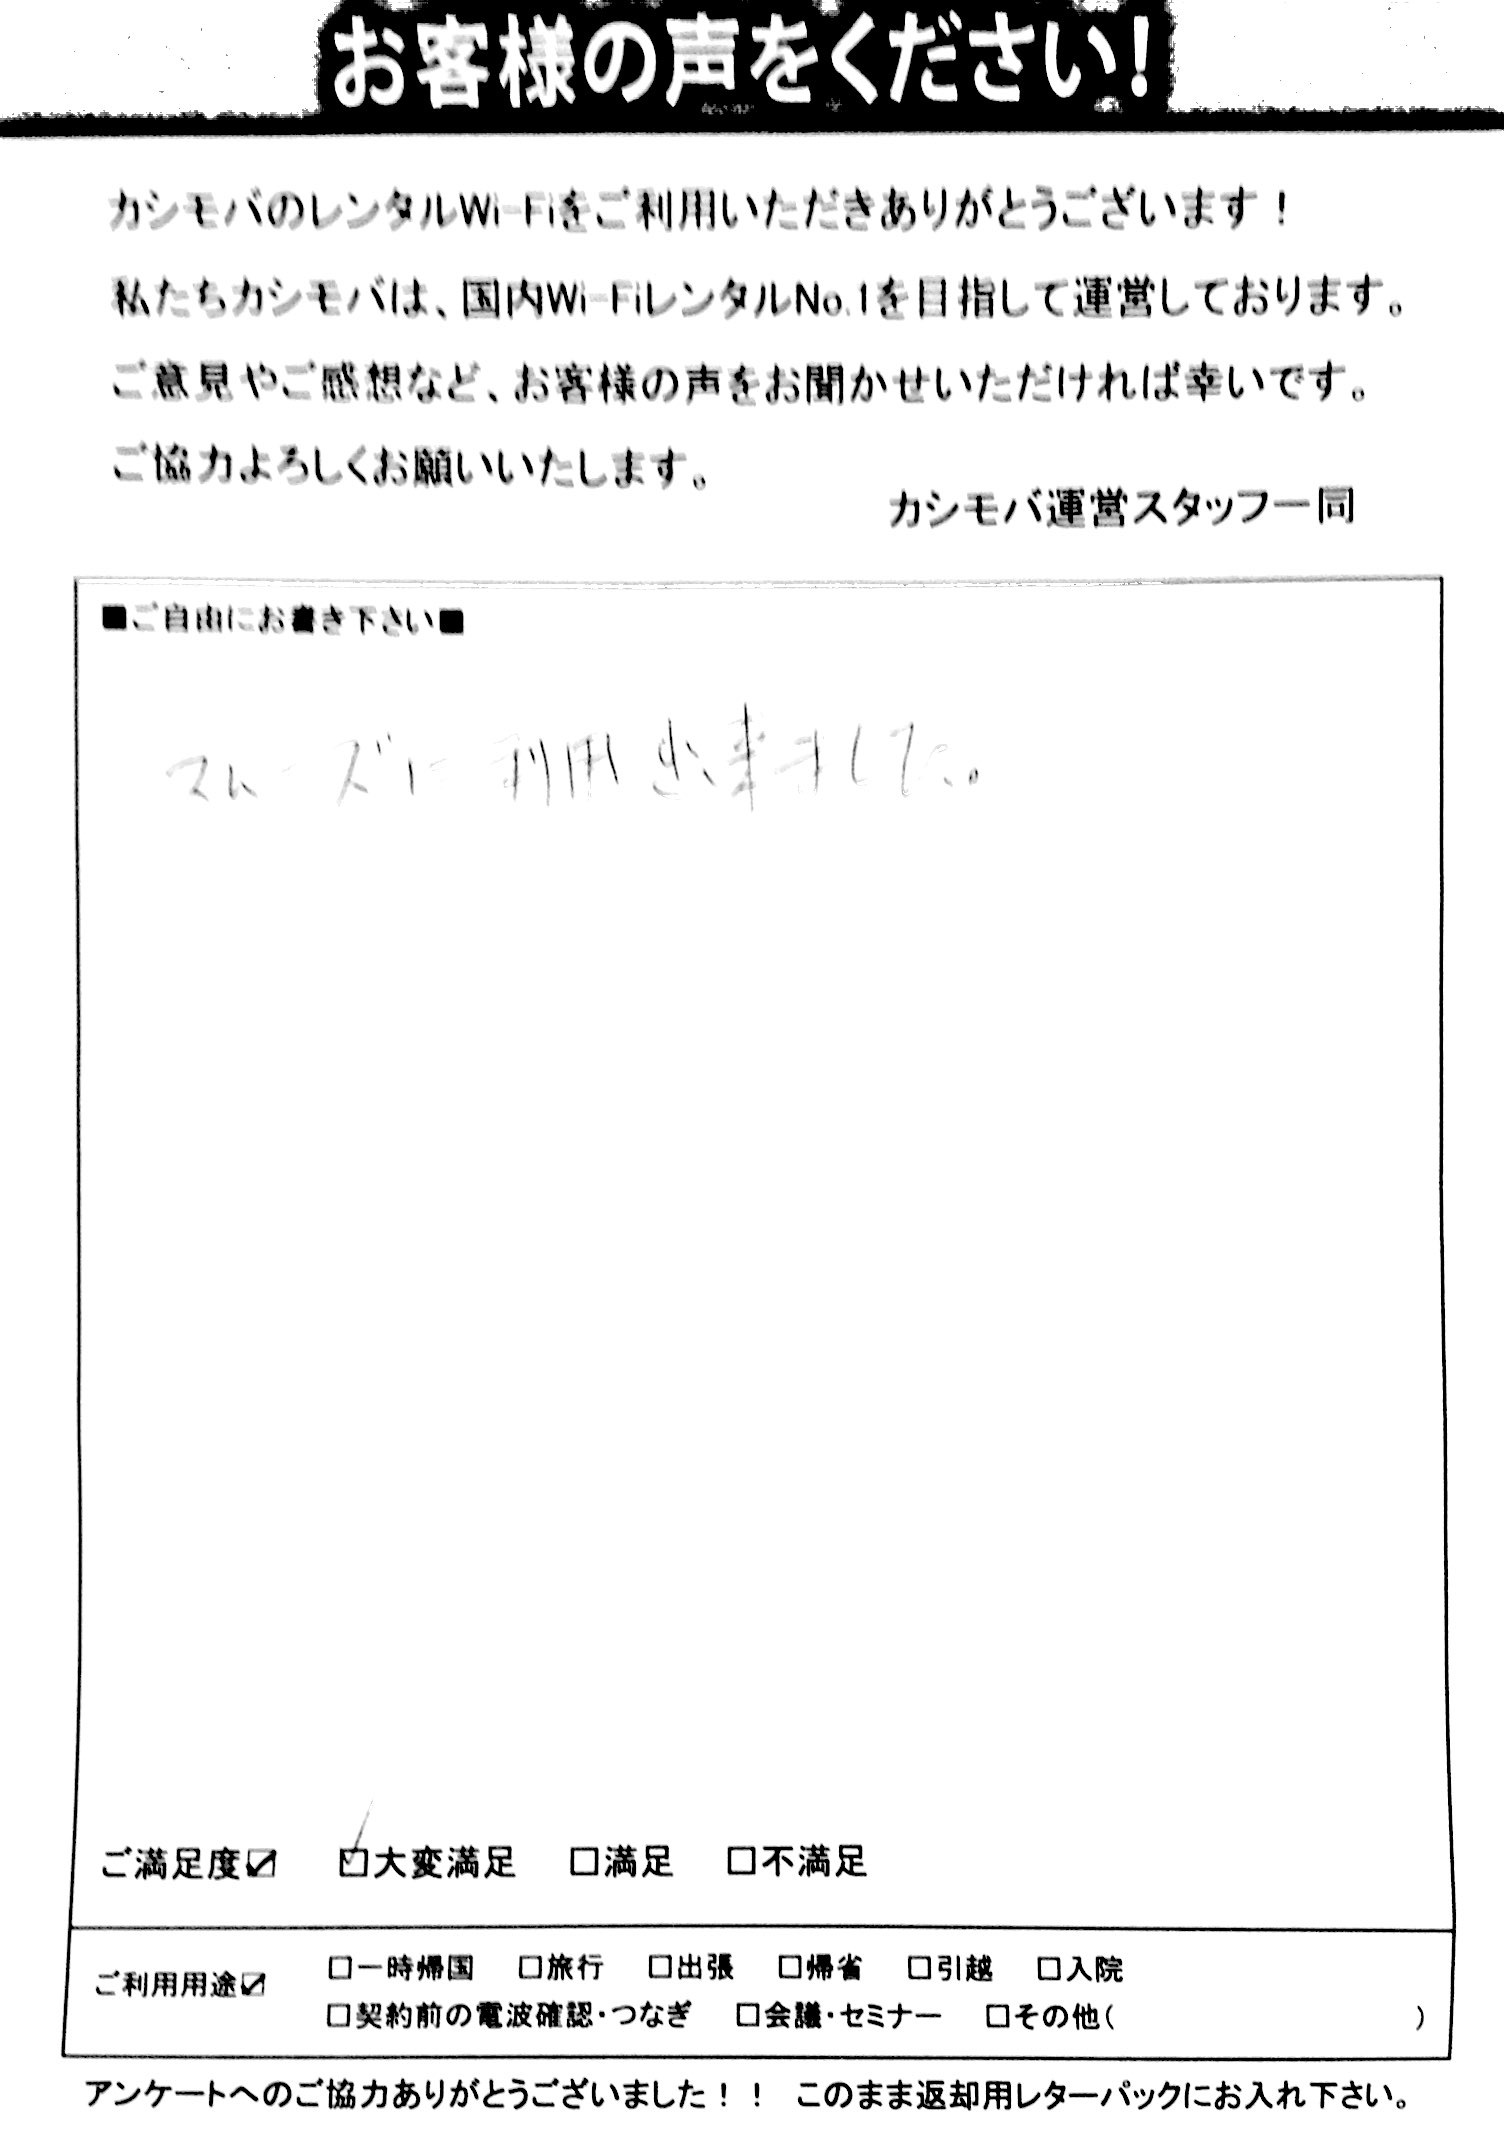 お客様の声をください!
カシモバのレンタルWi-Fiをご利用いただきありがとうございます!
私たちカシモバは、国内Wi-FiレンタルNo.1を目指して運営しております。
ご意見やご感想など、お客様の声をお聞かせいただければ幸いです。
ご協力よろしくお願いいたします。
カシモバ運営スタッフ一同
■ご自由にお書き下さい■
スムーズに利用出来ました。
ご満足度☑ ☑大変満足 □満足 □不満足
ご利用用途☑ □一時帰国 □旅行 □出張 □帰省 □引越 □入院
□契約前の電波確認・つなぎ □会議・セミナー □その他( )
アンケートへのご協力ありがとうございました!! このまま返却用レターパックにお入れ下さい。